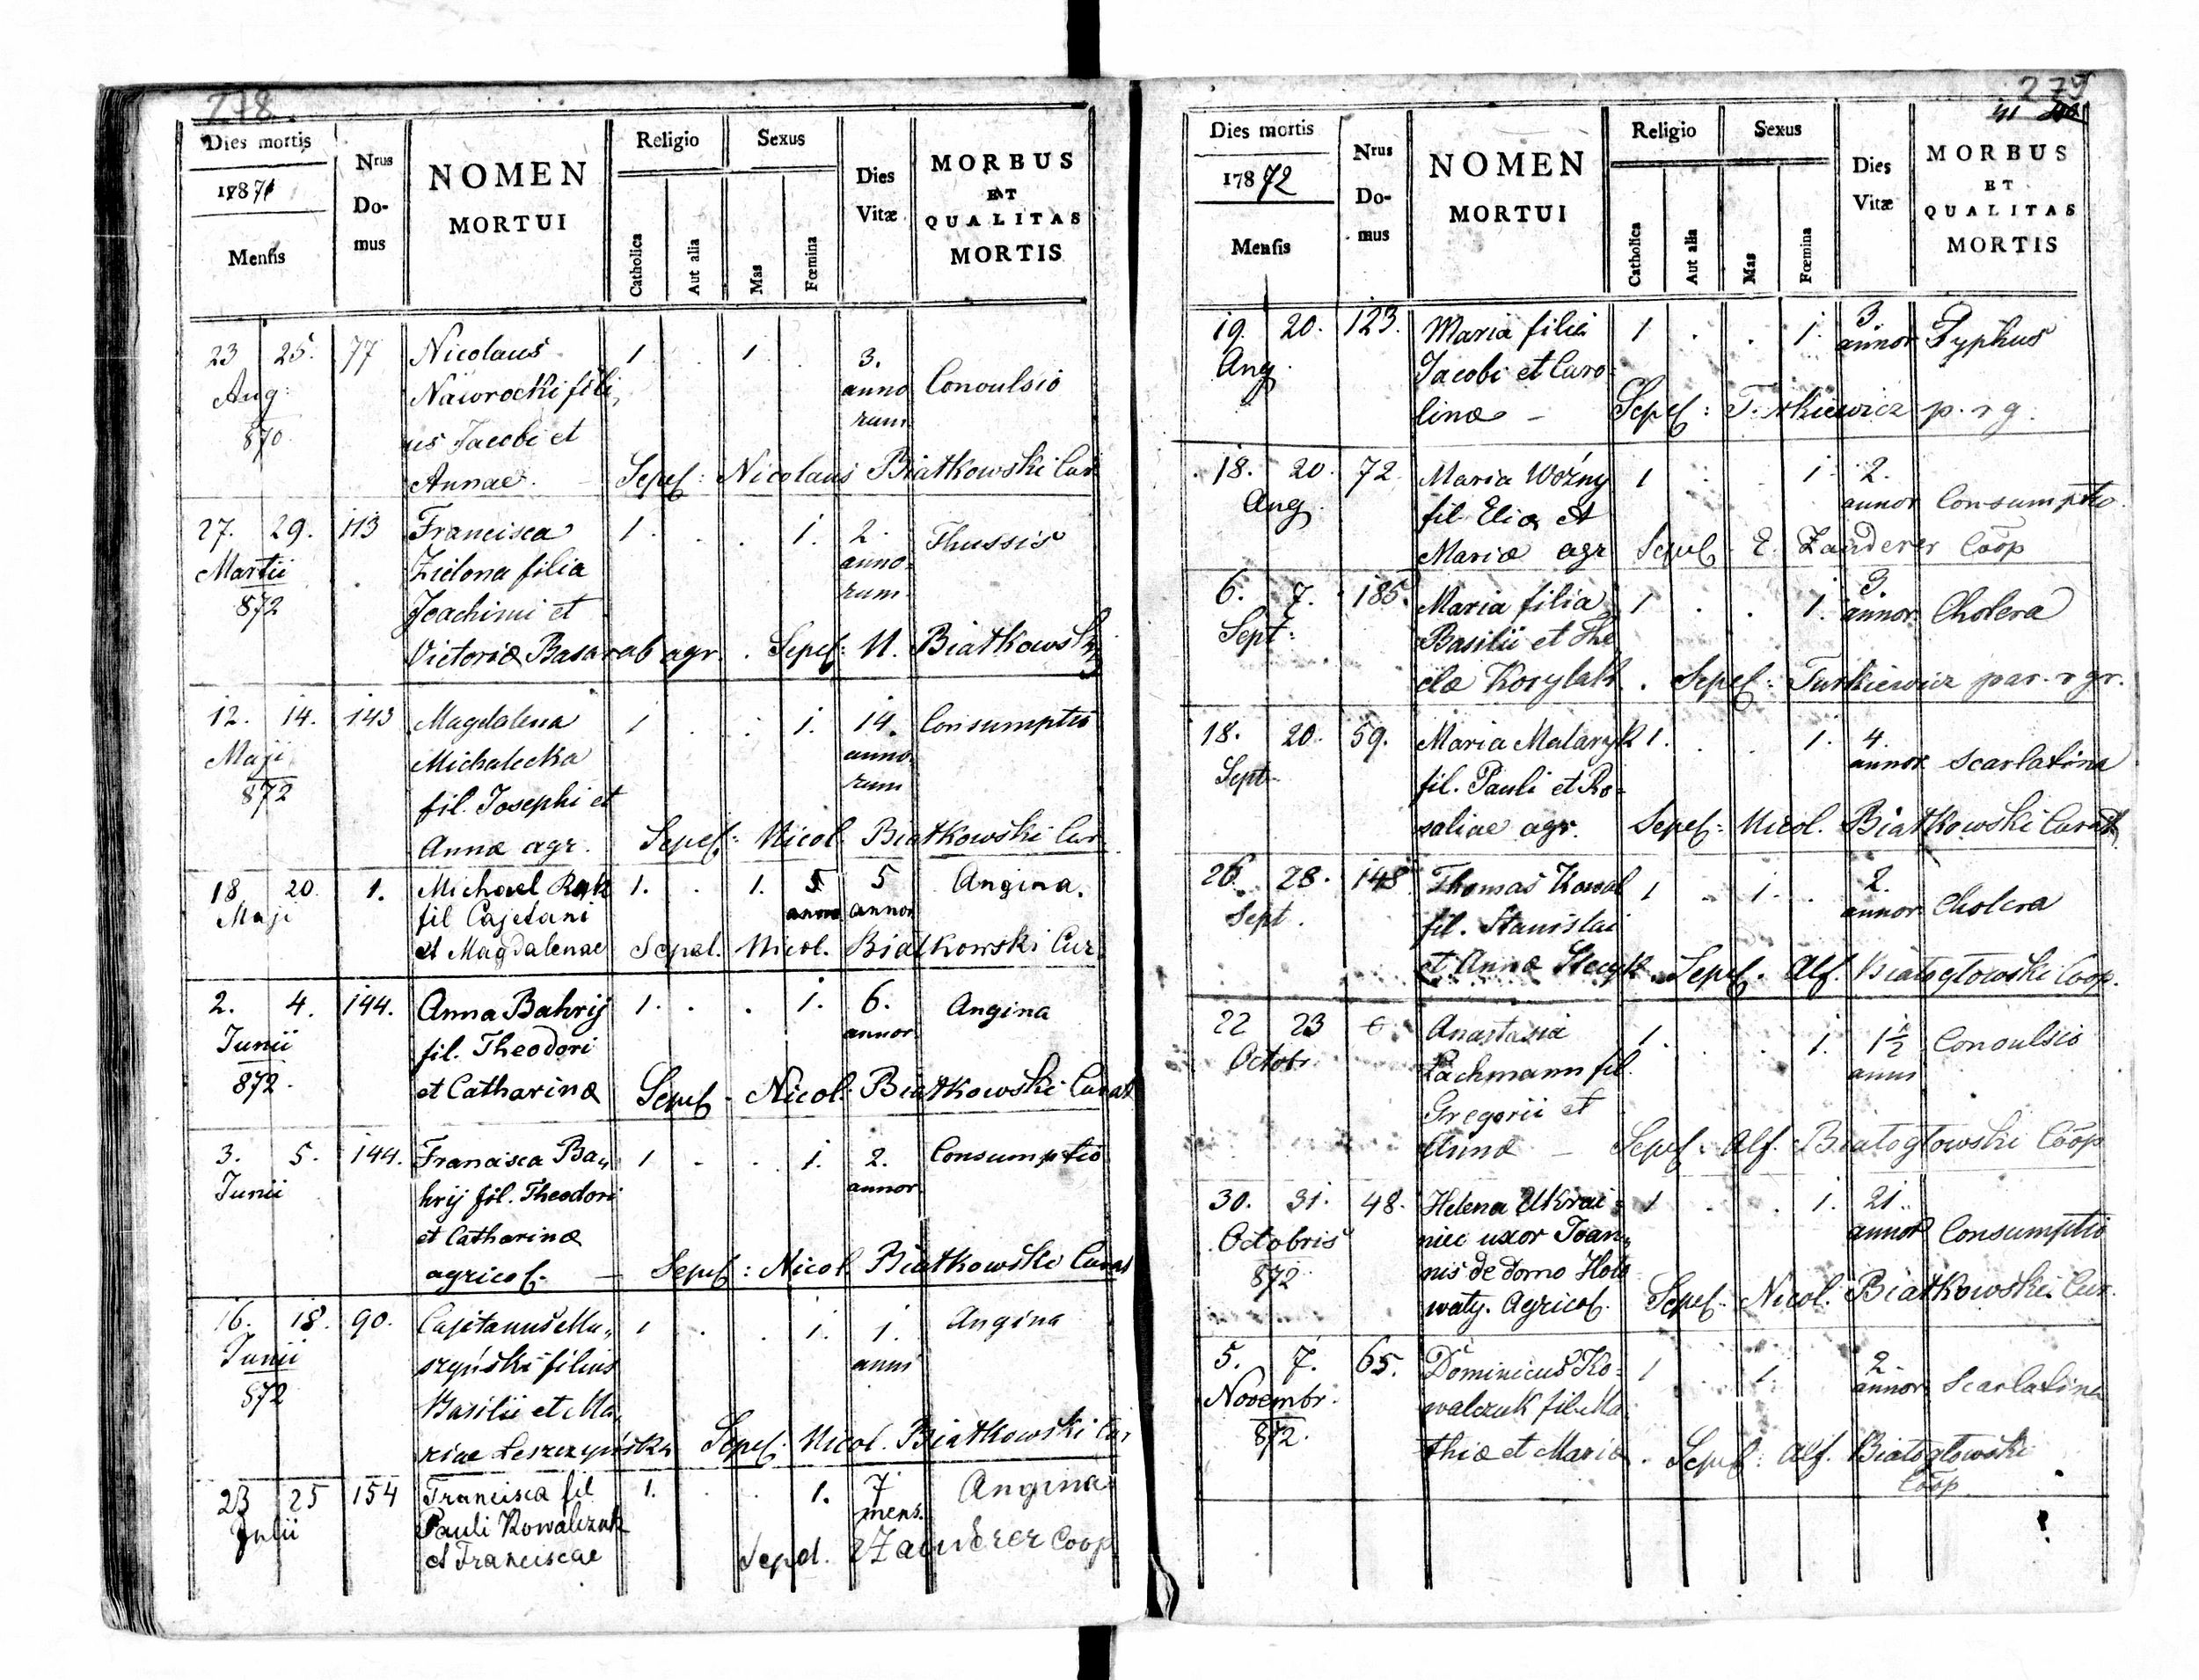 278.
Dies mortis
1871
Mensis
Nrus
Do-
mus
NOMEN
MORTUI
Religio
Catholica
Aut alia
Sexus
Mas
Fœmina
Dies
Vitæ
MORBUS
ET
QUALITAS
MORTIS
23 25. 77 Nicolaus 1 . 1 . 3.
Aug: Nawrocki fili, anno Convulsio
870. us Jacobi et rum
Annae. – Sepel: Nicolaus Białkowski Cur
27. 29. 113 Francisca 1. . . 1. 2. Thussis
Martii Zielona filia anno-
872 Joachimi et rum
Victoriæ Basarab agr. . Sepel: N. Białkowski
12. 14. 143 Magdalena 1 . . 1. 14. Consumptio
Maji Michalecka anno-
872 fil. Josephi et rum
Annæ agr. Sepel: Nicol. Białkowski Cur
18. 20. 1. Michael 1. . 1. 5 5 Angina.
Maji fil Cajetani annor annor
et Magdalenae Sepel. Nicol. Białkowski Cur.
2. 4. 144. Anna Bahrij 1. . . 1. 6. Angina
Junii fil. Theodori annor
872. et Catharinæ Sepel - Nicol. Białkowski Curat
3. 5. 144. Francisca Ba„ 1 . . 1. 2. Consumptio
Junii hrij fil. Theodori annor.
et Catharinæ
agricol. – Sepel: Nicol. Białkowski Curat
16. 18. 90. Cajetanus Mu„ 1 . . 1. 1. Angina
Junii szyński filius anni
872 Basilii et Ma„
riae Leszczyńska Sepel: Nicol. Białkowski Cur
23 25 154 Francisca fil 1. . . 1. 7 Angina
Julii Pauli Kowalczuk mens.
et Franciscae Sepel. Zauderer Coop
279
41
Dies mortis
17872
Mensis
Nrus
Do-
mus
NOMEN
MORTUI
Religio
Catholica
Aut alia
Sexus
Mas
Fœmina
Dies
Vitæ
MORBUS
ET
QUALITAS
MORTIS
19. 20. 123. Maria filia 1 . . 1. 3. Typhus
Aug. Jacobi et Caro- annor
linæ – Sepel: Turkiewicz p. r g.
18. 20. 72. Maria Woźny 1 . . 1 2.
Aug. fil Eliæ et annor Consumptio.
Mariæ agr Sepel. E. Zauderer Coop
6. 7. 185. Maria filia 1 . . 1. 3. Cholera
Sept: Basilii et The annor
clæ Korylak . Sepel: Turkiewicz par. r gr.
18. 20. 59. Maria Malaryk 1. . . 1. 4.
Sept. fil. Pauli et Ro- annor. scarlatina
saliae agr. Sepel: Nicol. Białkowski Curat
26. 28. 148. Thomas Kowal 1 . 1. . 2.
Sept. fil. Stanislai annor Cholera
et Annæ Stecyk. Sepel. Alf. Białogłowski Coop.
22 23 Anastasia 1. . . 1. 1½ Convulsio
Octobr. Lachmann fil. anni
Gregorii et
Annæ – Sepel. Alf. Białogłowski Coop
30. 31. 48. Helena Ukrai- 1 . . 1. 21.
Octobris niec uxor Joan„ annor Consumptio
872 nis de domo Holo
waty. Agricol. Sepel. Nicol. Białkowski Cur.
5. 7. 65. Dominicus Ko- 1 . 1. . 2.
Novembr. walczuk fil. Ma annor. Scarlatina
872. thiæ et Mariæ. Sepel: Alf. Białogłowski
Coop